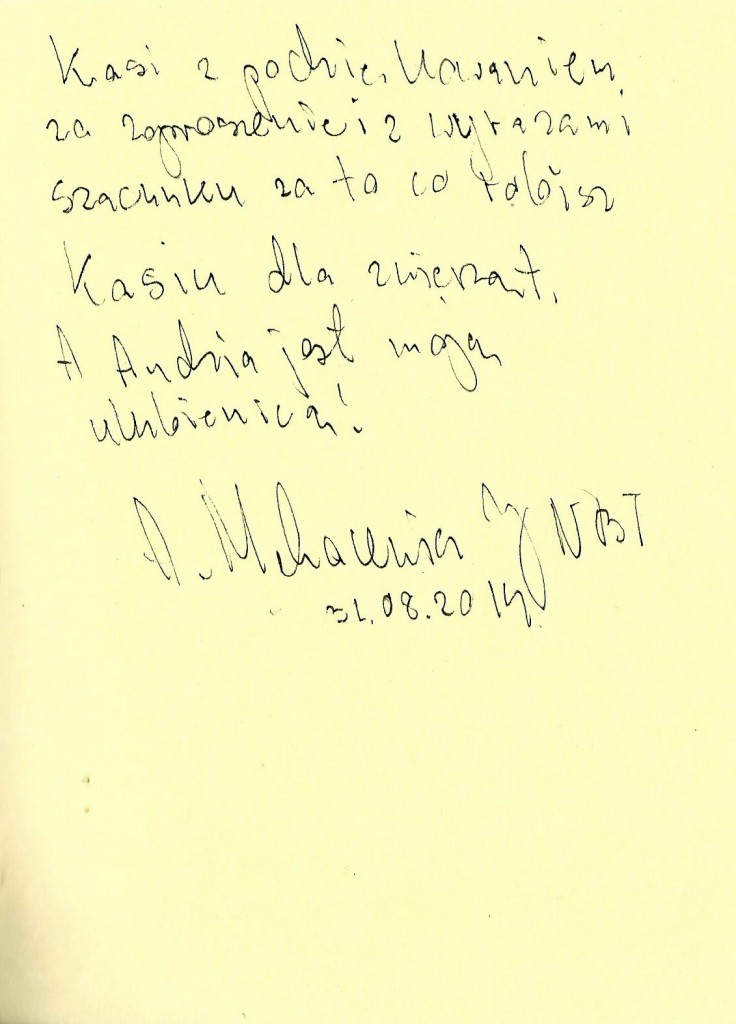 Kasi z podziękowaniem
za zaproszenie i z wyrazami
szacunku za to co robisz
Kasiu dla zwierząt.
A Andzia jest moją
ulubienicą!
A. NBT
31.08.2014